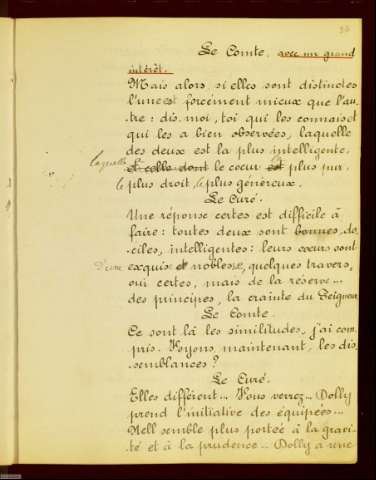 Le Comte, avec un grand
intérêt.
Mais alors, si elles sont distinctes
l'une est forcément mieux que l'au
tre: dis moi, toi qui les connais et
qui les a bien observées, laquelle
des deux est la plus intelligente,
laquelle et celle dont le cœur est plus pur
le plus droit, le plus généreux.
Le Curé.
Une réponse certes est difficile à
faire: toutes deux sont bonnes, do
ciles, intelligentes: leurs cœurs sont
d'une exquise noblesse, quelques travers,
oui certes, mais de la réserve...
des principes, la crainte du Seigneur
Le Comte.
Ce sont là les similitudes, j'ai com
pris. Voyons, maintenant, les dis
semblances?
Le Curé.
Elles diffèrent... Vous verrez... Dolly
prend l'initiative des équipées...
Nell semble plus portée à la gravi
té et à la prudence... Dolly a une